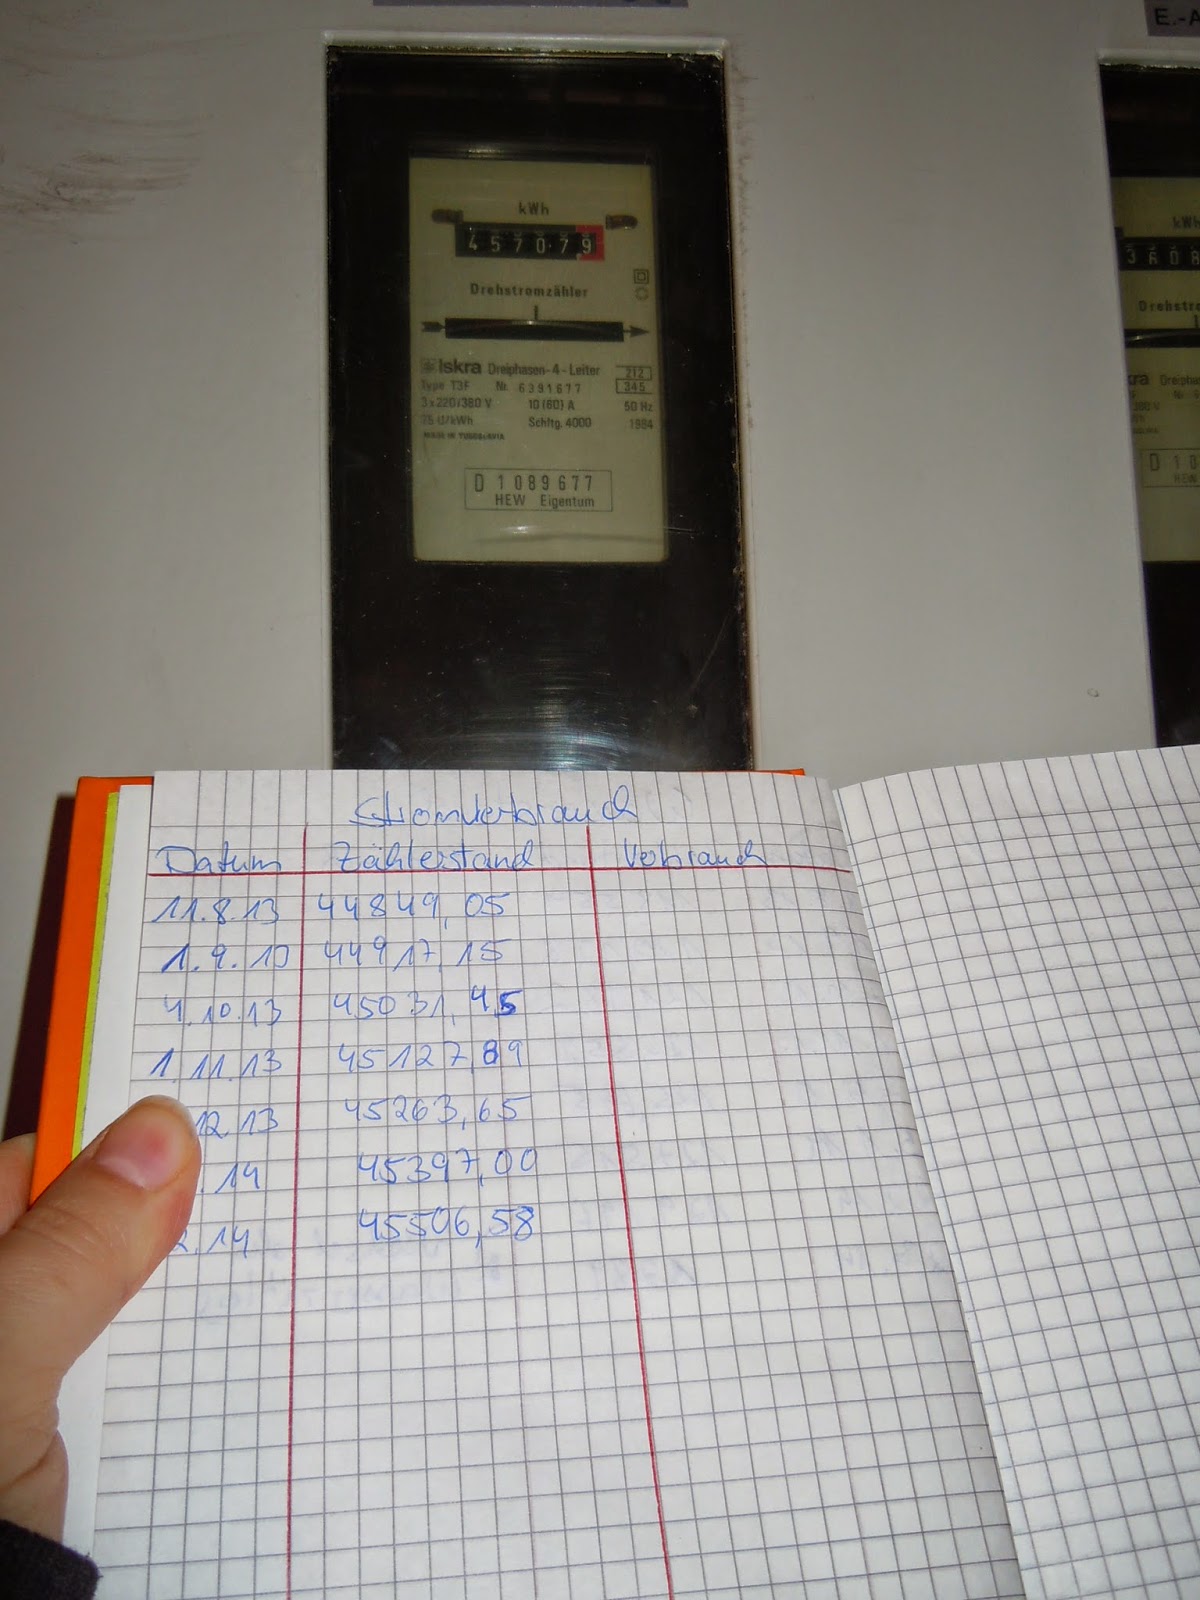 E.-A
kWh
457079
Drehstromzähler
Iskra Dreiphasen-4-Leiter 212
Type T3F Nr. 6391677 345
3x220/380 V 10(60) A 50 Hz
75 U/kWh Schltg. 4000 1984
MADE IN YUGOSLAVIA
D 1089677
HEW Eigentum
kWh
3608
Drehstro
kra Dreiphas
380 V
D 10
HEW
Stromverbrauch
Datum Zählerstand Verbrauch
11.8.13 44849,05
1.9.10 44917,15
4.10.13 45031,45
1.11.13 45127,89
12.13 45263,65
.14 45397,00
2.14 45506,58